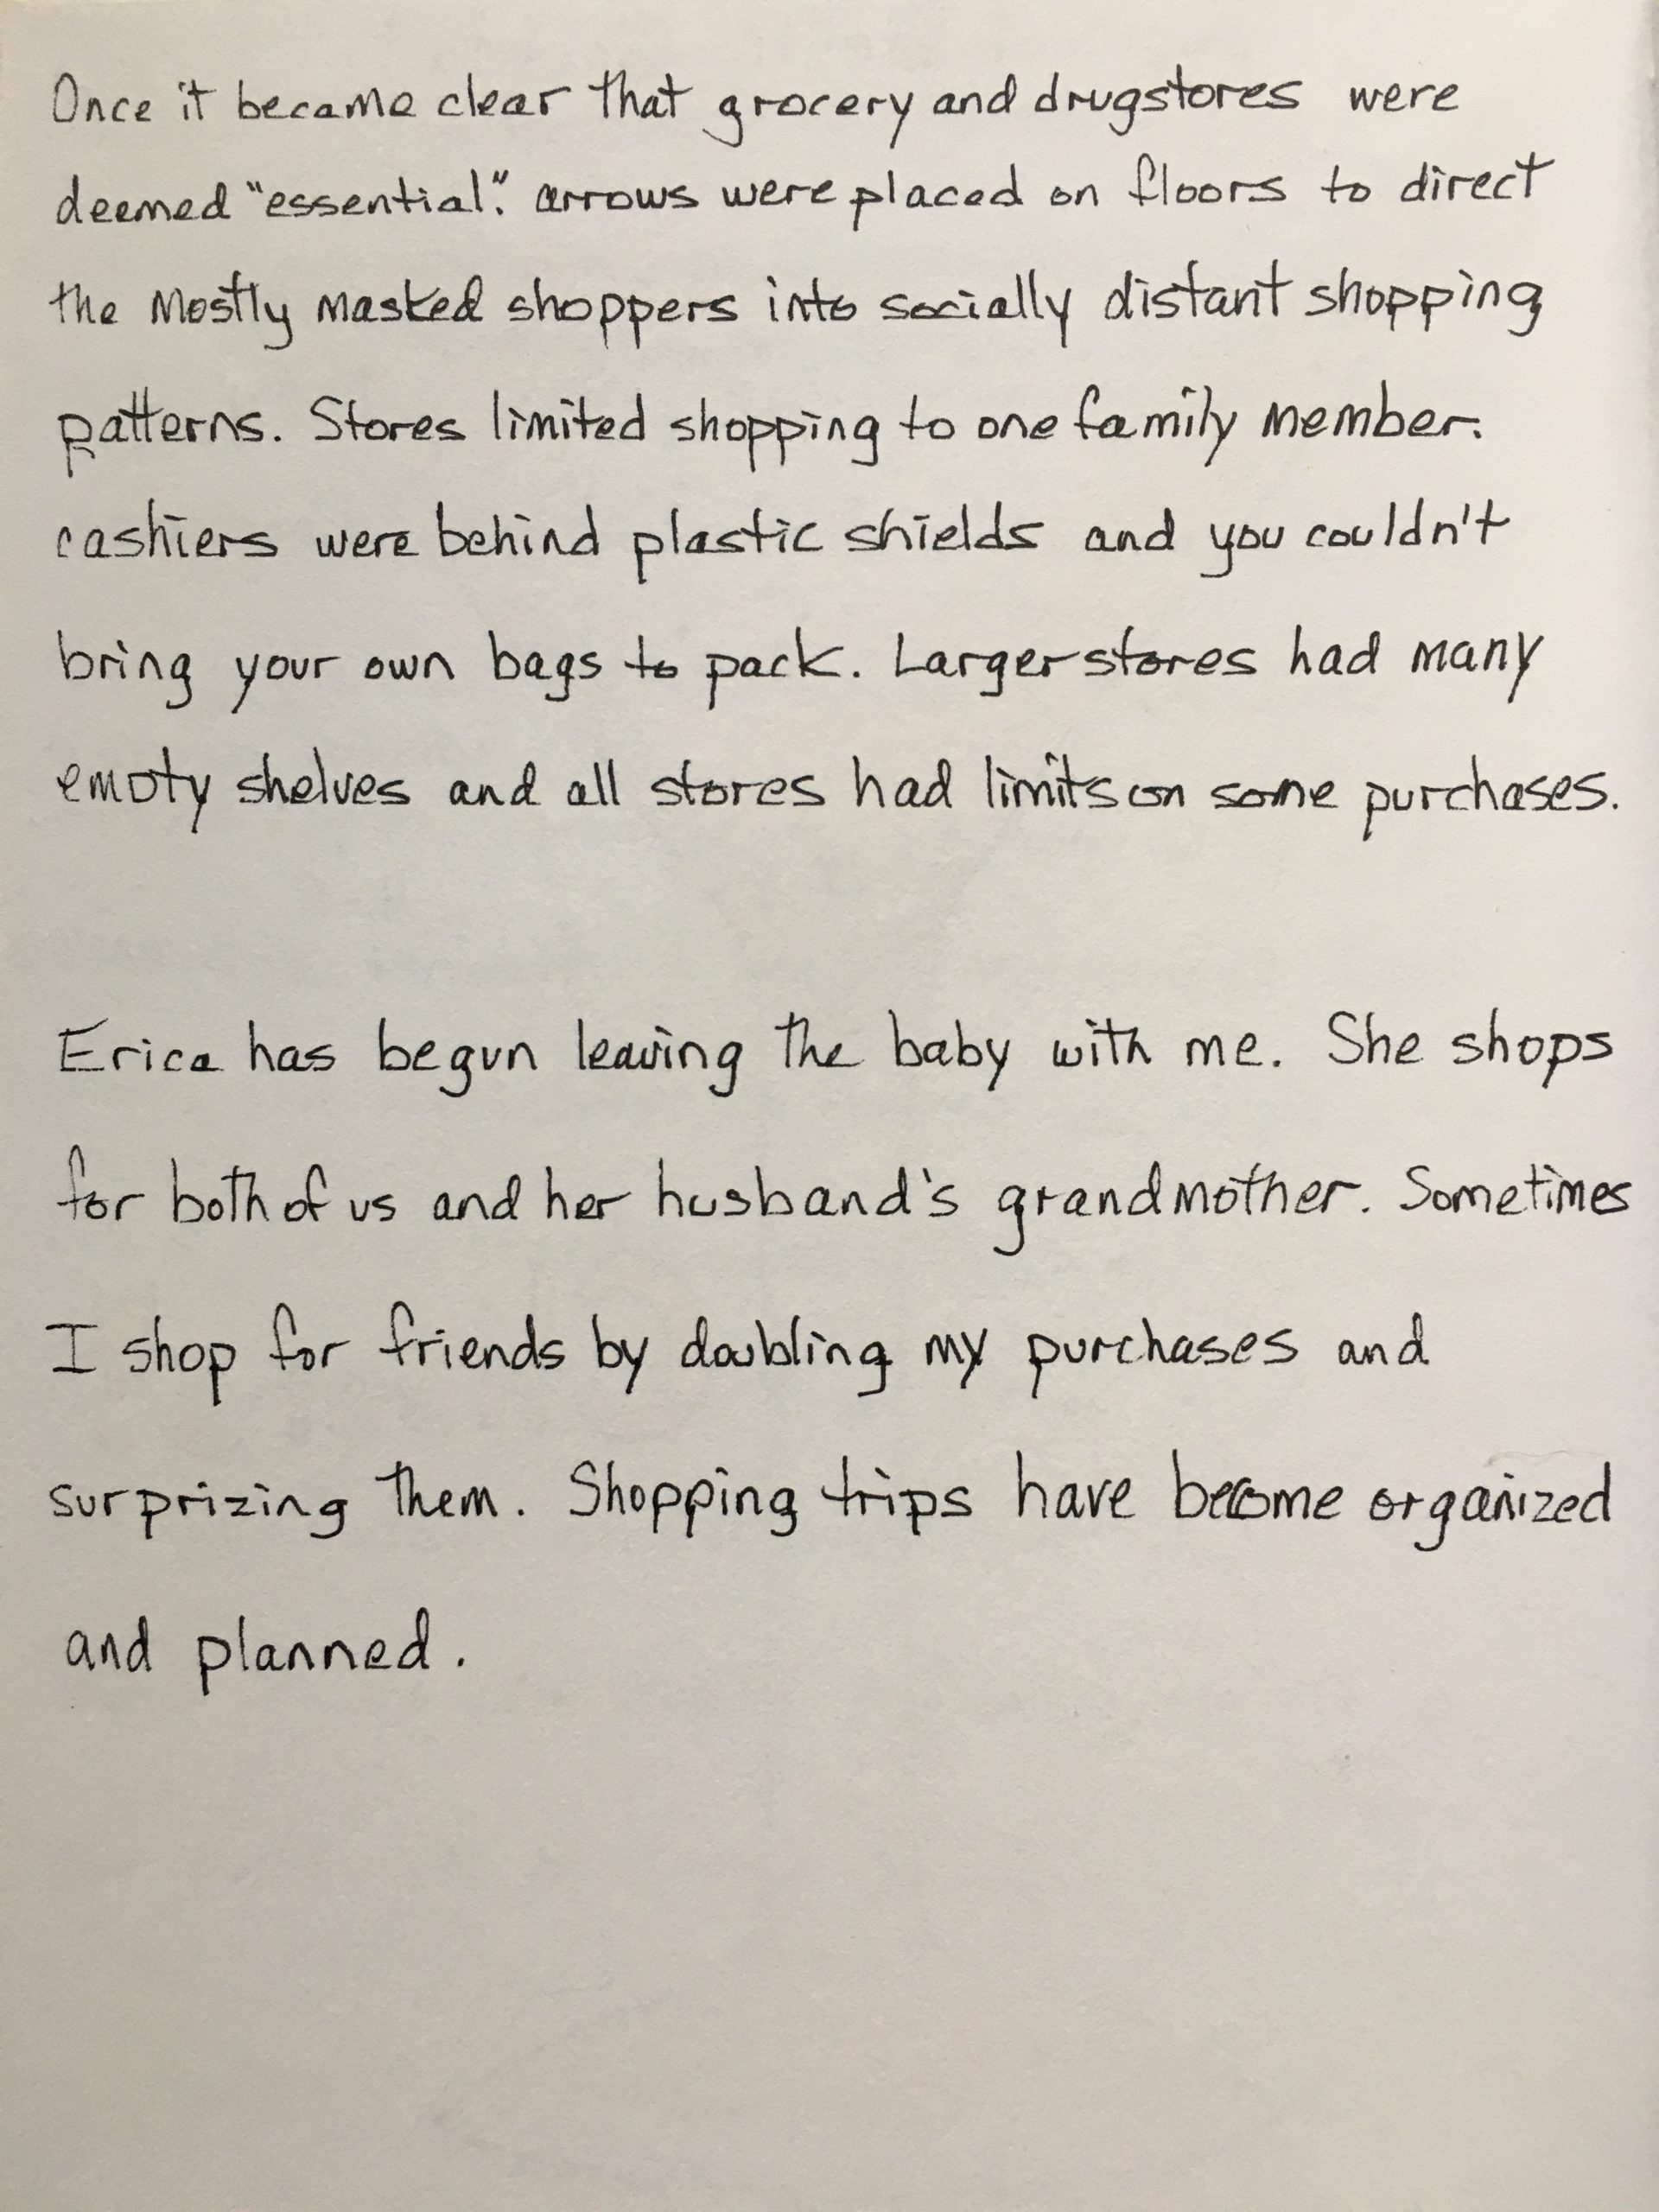 Once it became clear that grocery and drugstores were
deemed "essential". arrows were placed on floors to direct
the mostly masked shoppers into socially distant shopping
patterns. Stores limited shopping to one family member.
cashiers were behind plastic shields and you couldn't
bring your own bags to pack. Larger stores had many
empty shelves and all stores had limits on some purchases.
Erica has begun leaving the baby with me. She shops
for both of us and her husband's grandmother. Sometimes
I shop for friends by doubling my purchases and
surprizing them. Shopping trips have become organized
and planned.